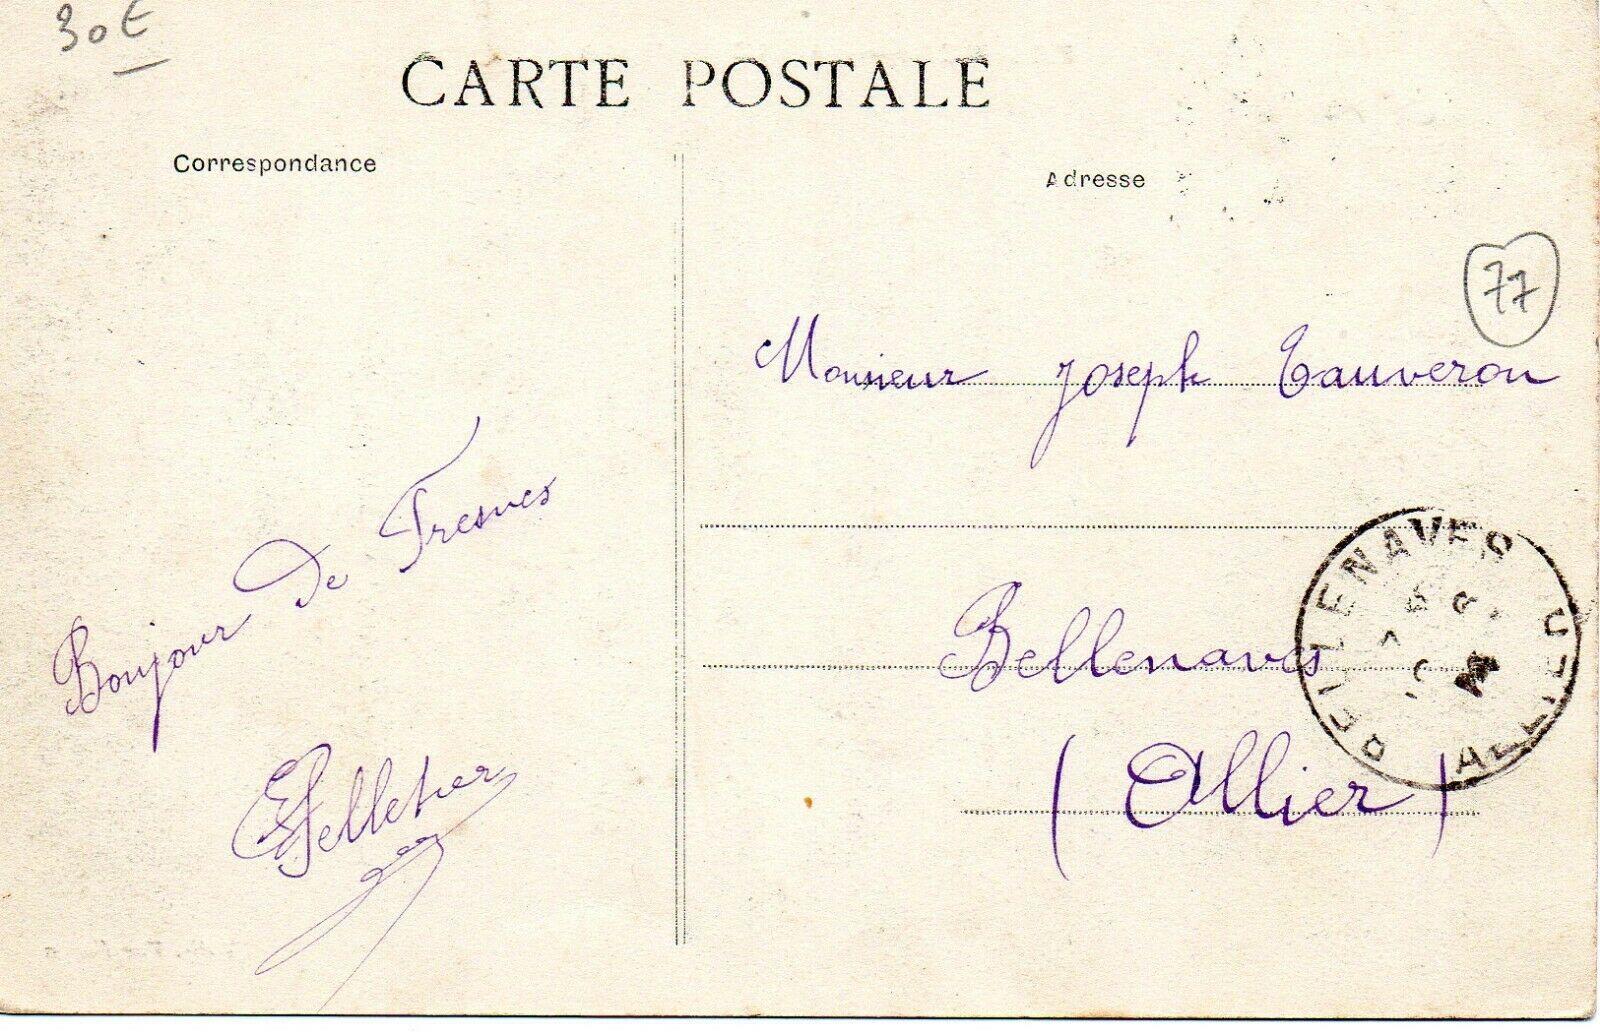 30€
CARTE POSTALE
Correspondance
Adresse
77
Monsieur Joseph Tauveron
Bonjour de Tresmes
EPelletier
Bellenaves
(Allier)
BELLENAVES
ALLIER